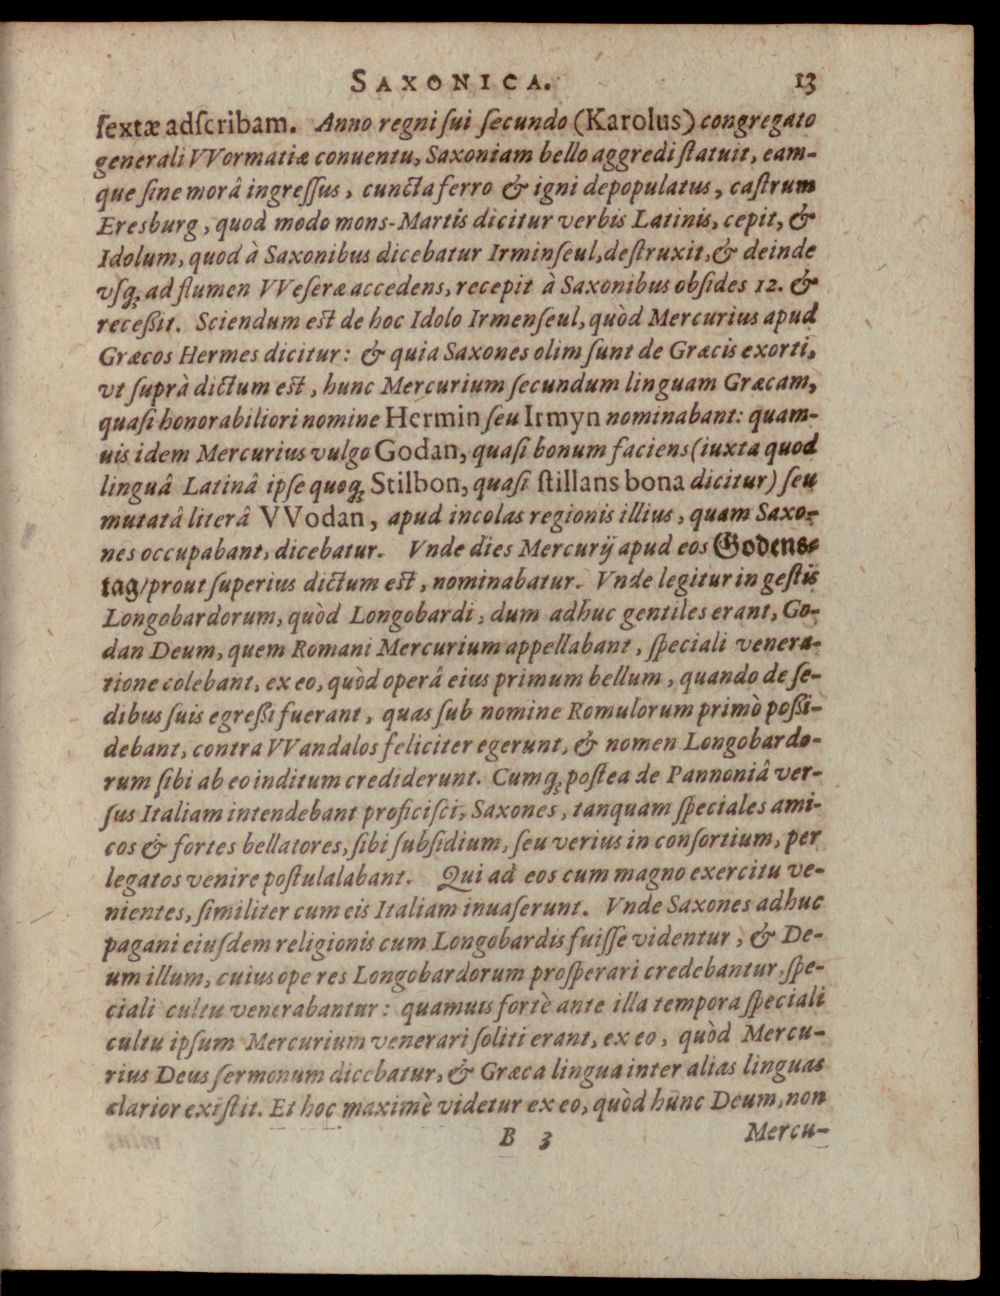 SAXONICA. 13
ſextæ adſcribam. Anno regni ſui ſecundo (Karolus) congregato
generali VVormatiæ conuentu, Saxoniam bello aggredi ſtatuit, eam-
que ſine morâ ingreſſus, cuncta ferro & igni depopulatus, caſtrum
Eresburg, quod modo mons-Martis dicitur verbis Latinis, cepit, &
Idolum, quod à Saxonibus dicebatur Irminſeul, deſtruxit, & deinde
vſq; ad flumen VVeſeræ accedens, recepit à Saxonibus obſides 12. &
receßit. Sciendum est de hoc Idolo Irmenſeul, quòd Mercurius apud
Græcos Hermes dicitur: & quia Saxones olim ſunt de Græcis exorti,
vt ſuprà dictum est, hunc Mercurium ſecundum linguam Græcam,
quaſi honorabiliori nomine Hermin ſeu Irmyn nominabant: quam-
uis idem Mercurius vulgo Godan, quaſi bonum faciens (iuxta quod
linguâ Latinâ ipſe quoq; Stilbon, quaſi ſtillans bona dicitur) ſeu
mutatâ literâ VVodan, apud incolas regionis illius, quam Saxo-
nes occupabant, dicebatur. Vnde dies Mercurij apud eos Godens-
tag/ prout ſuperius dictum est, nominabatur. Vnde legitur in geſtis
Longobardorum, quòd Longobardi, dum adhuc gentiles erant, Go-
dan Deum, quem Romani Mercurium appellabant, ſpeciali venera-
tione colebant, ex eo, quòd operâ eius primum bellum, quando de ſe-
dibus ſuis egreßi fuerant, quas ſub nomine Romulorum primò poßi-
debant, contra VVandalos feliciter egerunt, & nomen Longobardo-
rum ſibi ab eo inditum crediderunt. Cumq; poſtea de Pannoniâ ver-
ſus Italiam intendebant proficiſci, Saxones, tanquam ſpeciales ami-
cos & fortes bellatores, ſibi ſubſidium, ſeu verius in conſortium, per
legatos venire poſtulalabant. Qui ad eos cum magno exercitu ve-
nientes, ſimiliter cum eis Italiam inuaſerunt. Vnde Saxones adhuc
pagani eiuſdem religionis cum Longobardis fuiſſe videntur, & De-
um illum, cuius ope res Longobardorum proſperari credebantur, ſpe-
ciali cultu venerabantur: quamuis fortè ante illa tempora ſpeciali
cultu ipſum Mercurium venerari ſoliti erant, ex eo, quòd Mercu-
rius Deus ſermonum dicebatur, & Græca lingua inter alias linguas
clarior exiſtit. Et hoc maximè videtur ex eo, quòd hunc Deum, non
B 3 Mercu-